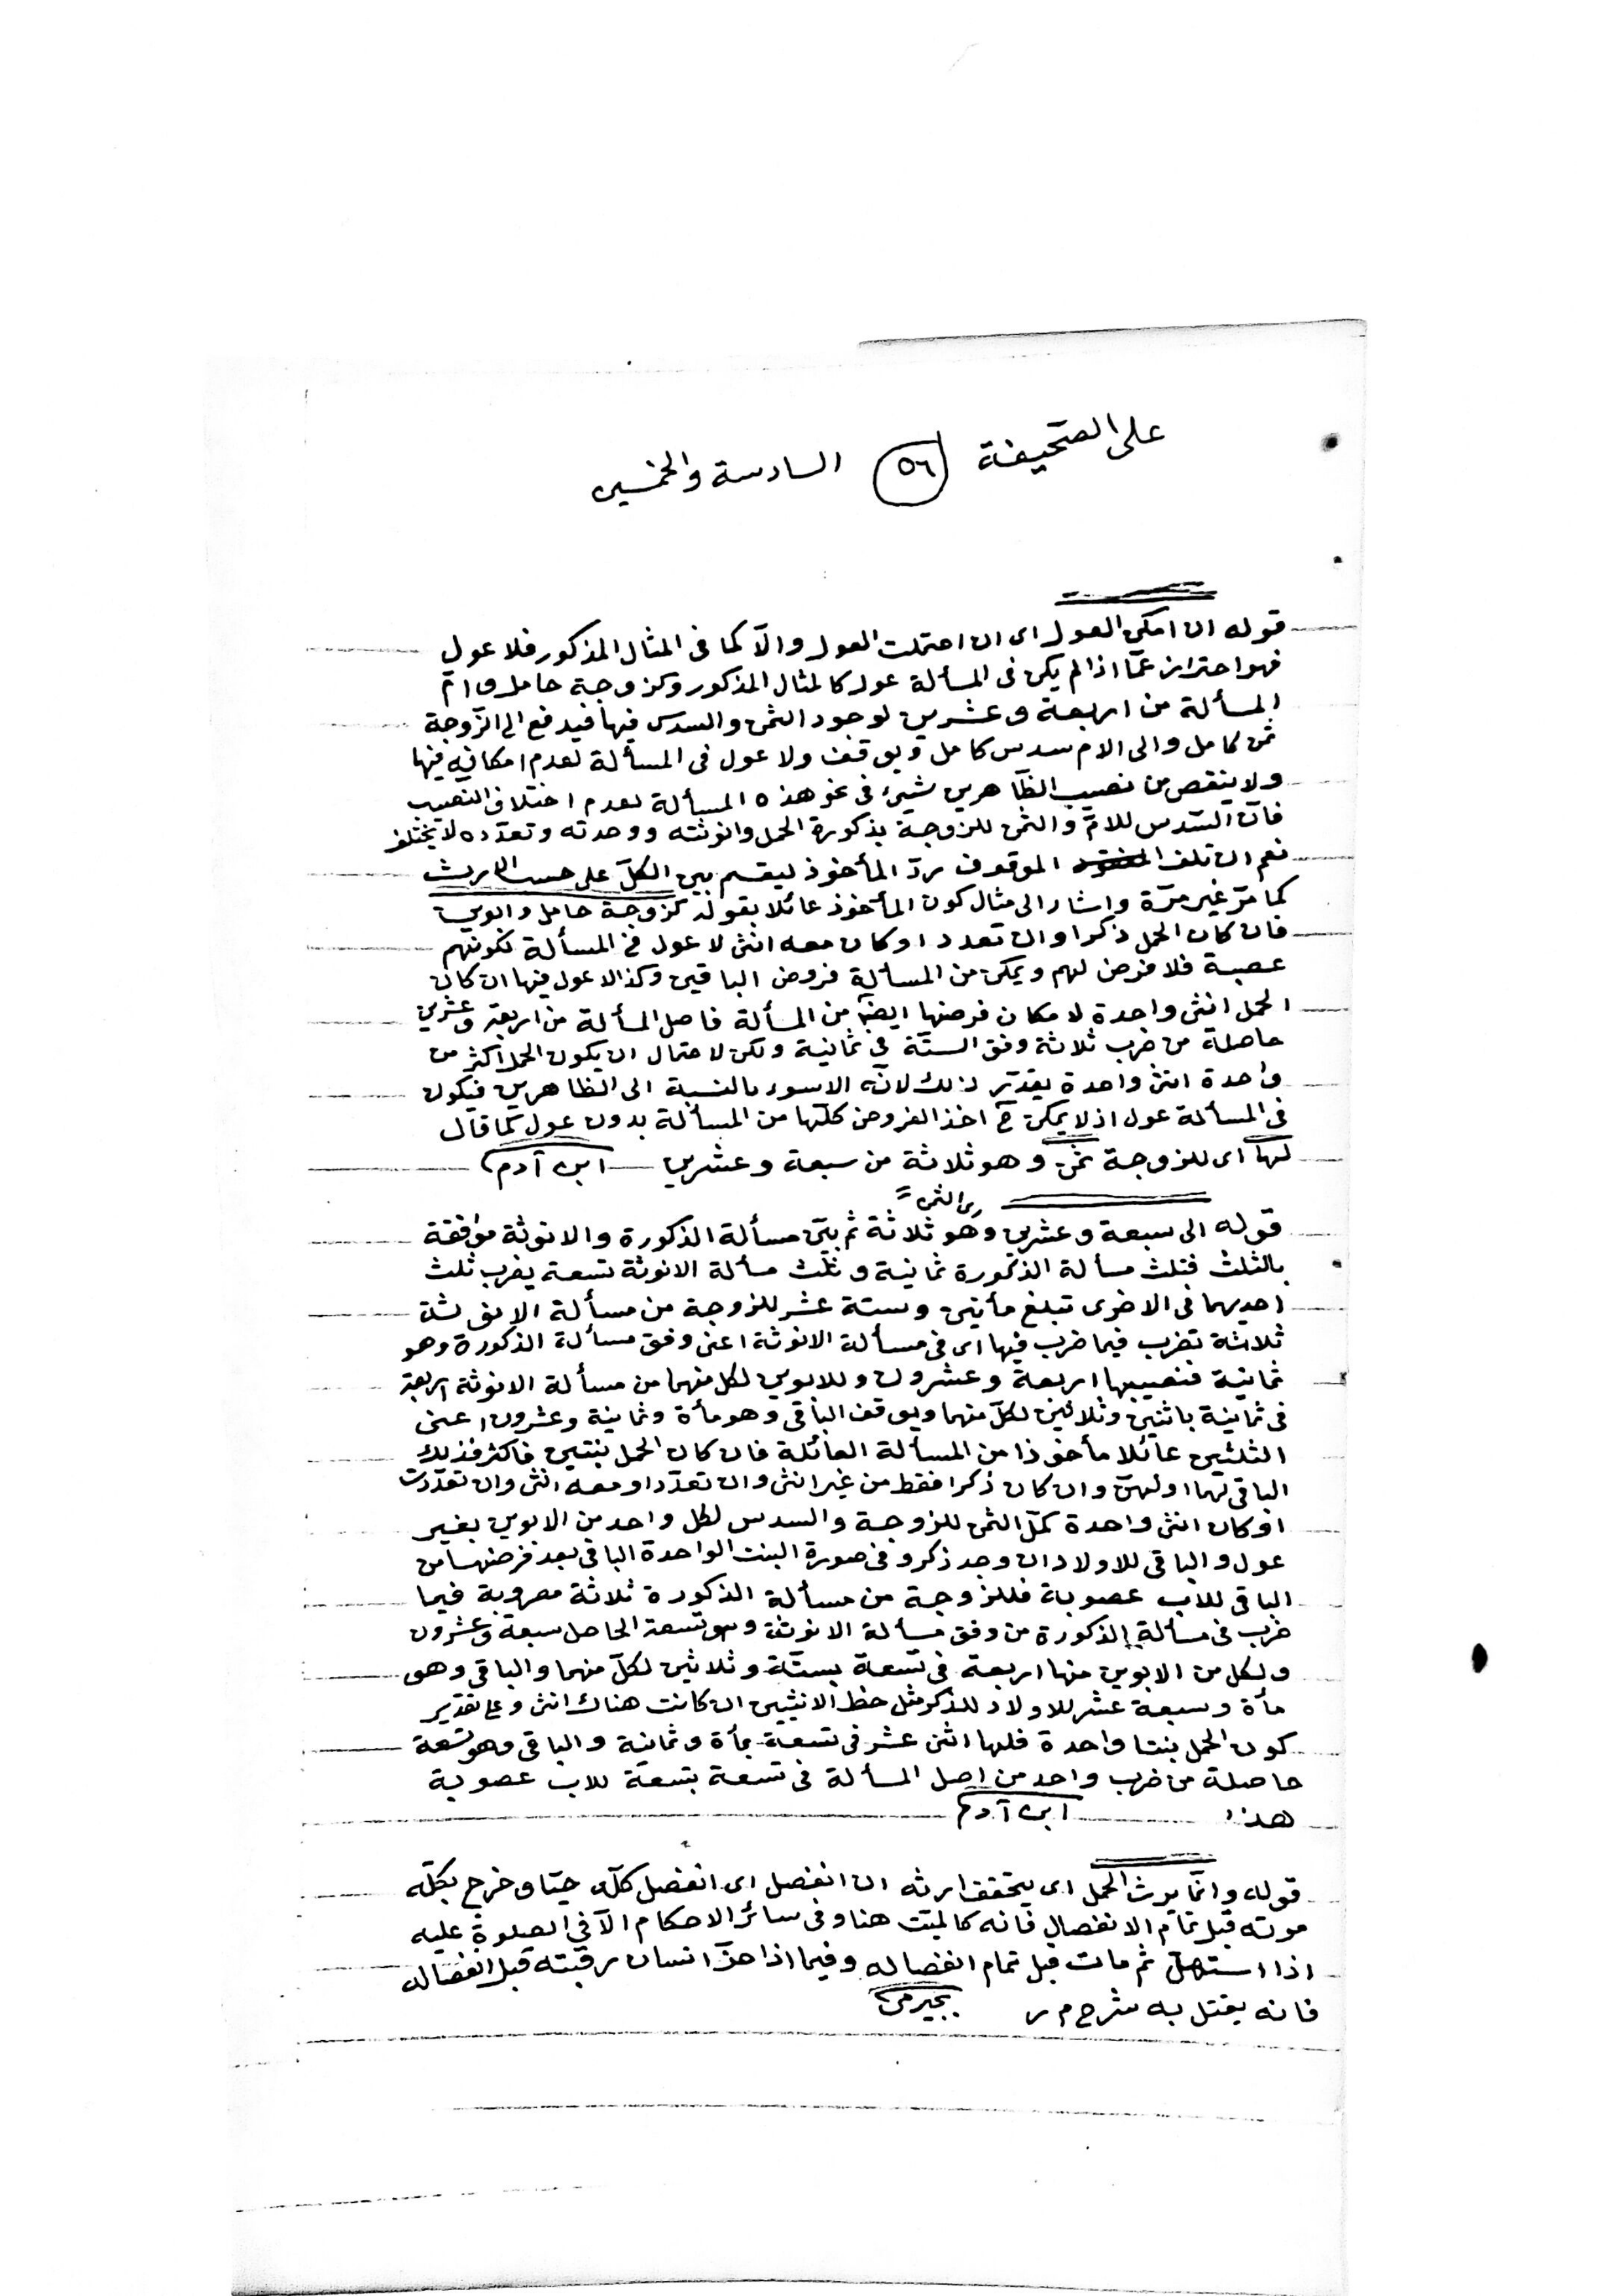 على الصحيفة ٥٦ السادسة والخمسين
قوله ان امكن العول اى ان احتملت العول والّا كما فى المثال المذكور فلا عول
فهو احتراز عمّا اذا لم يكن فى المسألة عول كالمثال المذكور وكزوجة حامل وامّ
المسألة من اربعة وعشرين لوجود الثمن والسدس فيها فيدفع الى الزّوجة
ثمن كامل والى الام سدس كامل ويوقف ولا عول فى المسألة لعدم امكانه فيها
ولا ينقص من نصيب الظّاهرين شيئ فى نحو هذه المسألة لعدم اختلاف النصيب
فانّ السّدس للامّ والثمن للزوجة بذكورة الحمل وانوثته ووحدته وتعدّده لا يختلف
نعم ان تلف الموقوف ردّ المأخوذ ليقسم بين الكلّ على حسب الارث
كما مرّ غير مرّة واشار الى مثال كون المأخوذ عائلا بقوله كزوجة حامل وابوين
فان كان الحمل ذكرا وان تعدد او كان معه انثى لا عول فى المسألة لكونهم
عصبة فلا فرض لهم ويمكن من المسألة فروض الباقين وكذا لا عول فيها ان كان
الحمل انثى واحدة لامكان فرضها ايضا من المسألة فاصل المسألة من اربعة وعشرين
حاصلة من ضرب ثلاثة وفق الستّة فى ثمانية ولكن لاحتمال ان يكون الحمل اكثر من
واحدة انثى واحدة يقدّر ذلك لانّه الاسوء بالنسبة الى الظاهرين فيكون
فى المسألة عول اذ لا يمكن ح اخذ الفروض كلّها من المسألة بدون عول كما قال
لها اى للزوجة ثمن وهو ثلاثة من سبعة وعشرين ابن آدم
اى الثمن
قوله الى سبعة وعشرين وهو ثلاثة ثم بين مسألة الذكورة والانوثة موافقة
بالثلث فثلث مسألة الذكورة ثمانية وثلث مسألة الانوثة تسعة يضرب ثلث
احديهما فى الاخرى تبلغ مأتين وستة عشر للزوجة من مسألة الانوثة
ثلاثة تضرب فيما ضرب فيها اى فى مسألة الانوثة اعنى وفق مسألة الذكورة وهو
ثمانية فنصيبها اربعة وعشرون وللابوين لكل منهما من مسألة الانوثة اربعة
فى ثمانية باثنين وثلاثين لكلّ منهما ويوقف الباقى وهو مأة وثمانية وعشرون اعنى
الثلثين عائلا مأخوذا من المسألة العائلة فان كان الحمل بنتين فاكثر فذلك
الباقى لهما اولهنّ وان كان ذكرا فقط من غير انثى وان تعدّد او معه انثى وان تعدّدت
او كان انثى واحدة كمّل الثمن للزوجة والسدس لكل واحد من الابوين بغير
عول والباقى للاولاد ان وجد ذكر وفى صورة البنت الواحدة الباقى بعد فرضها من
الباقى للاب عصوبة فللزوجة من مسألة الذكورة ثلاثة مضروبة فيما
ضرب فى مسألة الذكورة من وفق مسألة الانوثة وهو تسعة الحاصل سبعة وعشرون
ولكل من الابوين منها اربعة فى تسعة بستّة وثلاثين لكلّ منهما والباقى وهو
مأة وسبعة عشر للاولاد للذكر مثل حظ الانثيين ان كانت هناك انثى وعلى تقدير
كون الحمل بنتا واحدة فلها اثنى عشر فى تسعة بمأة وثمانية والباقى وهو تسعة
حاصلة من ضرب واحد من اصل المسألة فى تسعة بتسعة للاب عصوبة
هذا ابن آدم
قوله وانّما يورث الحمل اى يتحقق ارثه ان انفصل اى انفصل كلّه حيّا وخرج بكلّه
موته قبل تمام الانفصال فانه كالميّت هنا وفى سائر الاحكام الّا فى الصلوة عليه
اذا استهلّ ثم مات قبل تمام انفصاله وفيما اذا حزّ انسان رقبته قبل انفصاله
فانه يقتل به شرح م ر بجيرمى